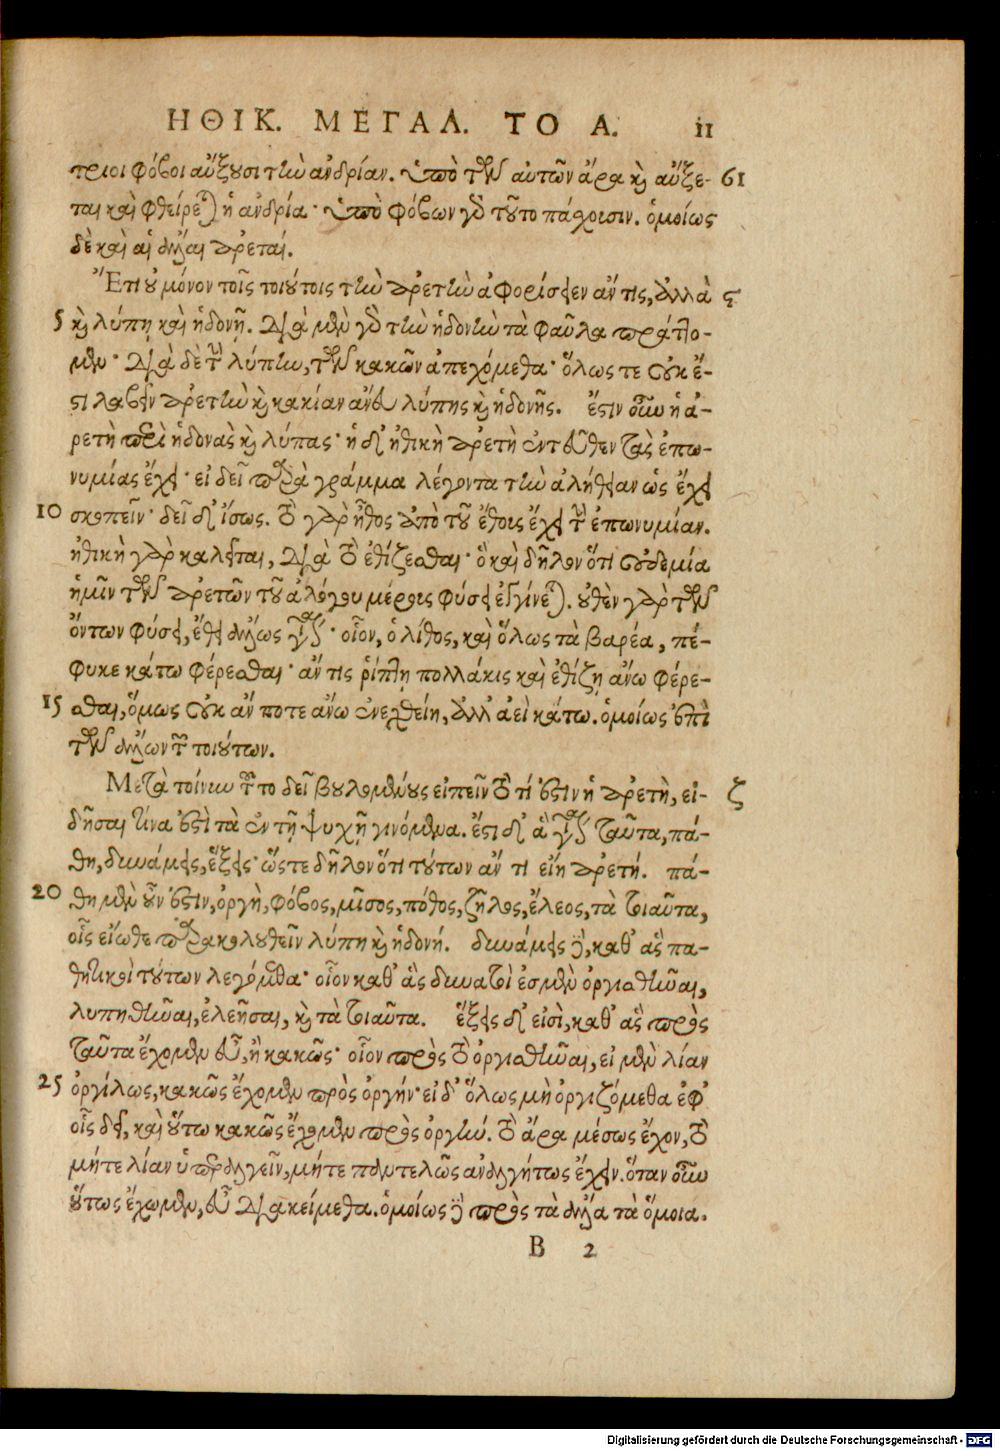 ΗΘΙΚ. ΜΕΓΑΛ. ΤΟ Α. 11
τριοι φόβοι αὔξουσι τὴν ἀνδρίαν. ὑπὸ τῶν αὐτῶν ἄρα καὶ αὔξε- 61
ται καὶ φθείρεται ἡ ἀνδρία· ὑπὸ φόβων γὰρ τοῦτο πάσχουσιν. ὁμοίως
δὲ καὶ αἱ ἄλλαι ἀρεταί.
Ἔτι οὐ μόνον τοῖς τοιούτοις τὴν ἀρετὴν ἀφορίσειεν ἄν τις, ἀλλὰ ϛ
5 καὶ λύπῃ καὶ ἡδονῇ. διὰ μὲν γὰρ τὴν ἡδονὴν τὰ φαῦλα πράττο-
μεν· διὰ δὲ τὴν λύπην, τῶν κακῶν ἀπεχόμεθα· ὅλως τε οὐκ ἔ-
στι λαβεῖν ἀρετὴν καὶ κακίαν ἄνευ λύπης καὶ ἡδονῆς. ἔστιν οὖν ἡ ἀ-
ρετὴ περὶ ἡδονὰς καὶ λύπας· ἡ δ' ἠθικὴ ἀρετὴ ἐντεῦθεν τὰς ἐπω-
νυμίας ἔχει· εἰ δεῖ παρὰ γράμμα λέγοντα τὴν ἀλήθειαν ὡς ἔχει
10 σκοπεῖν· δεῖ δ' ἴσως. τὸ γὰρ ἦθος ἀπὸ τοῦ ἔθους ἔχει τὴν ἐπωνυμίαν.
ἠθικὴ γὰρ καλεῖται, διὰ τὸ ἐθίζεσθαι· ὃ καὶ δῆλον ὅτι οὐδεμία
ἡμῖν τῶν ἀρετῶν τοῦ ἀλόγου μέρους φύσει ἐγγίνεται. οὐθὲν γὰρ τῶν
ὄντων φύσει, ἔθει ἄλλως γίνεται· οἷον, ὁ λίθος, καὶ ὅλως τὰ βαρέα, πέ-
φυκε κάτω φέρεσθαι· ἄν τις ῥίπτῃ πολλάκις καὶ ἐθίζῃ ἄνω φέρε-
15 σθαι, ὅμως οὐκ ἄν ποτε ἄνω ἐνεχθείη, ἀλλ' ἀεὶ κάτω. ὁμοίως ἐπὶ
τῶν ἄλλων τῶν τοιούτων.
Μετὰ τοίνυν τοῦτο δεῖ βουλομένους εἰπεῖν τὸ τί ἐστιν ἡ ἀρετὴ, εἰ- ζ
δῆσαι τίνα ἐστὶ τὰ ἐν τῇ ψυχῇ γινόμενα. ἔστι δ' ἃ γίνεται ταῦτα, πά-
θη, δυνάμεις, ἕξεις· ὥστε δῆλον ὅτι τούτων ἄν τι εἴη ἀρετή. πά-
20 θη μὲν οὖν ἐστιν, ὀργὴ, φόβος, μῖσος, πόθος, ζῆλος, ἔλεος, τὰ τοιαῦτα,
οἷς εἴωθε παρακολουθεῖν λύπη καὶ ἡδονή. δυνάμεις δὲ, καθ' ἃς πα-
θητικοὶ τούτων λεγόμεθα· οἷον καθ' ἃς δυνατοί ἐσμεν ὀργισθῆναι,
λυπηθῆναι, ἐλεῆσαι, καὶ τὰ τοιαῦτα. ἕξεις δ' εἰσὶ, καθ' ἃς πρὸς
ταῦτα ἔχομεν εὖ, ἢ κακῶς· οἷον πρὸς τὸ ὀργισθῆναι, εἰ μὲν λίαν
25 ὀργίλως, κακῶς ἔχομεν πρὸς ὀργήν· εἰ δ' ὅλως μὴ ὀργιζόμεθα ἐφ'
οἷς δεῖ, καὶ οὕτω κακῶς ἔχομεν πρὸς ὀργήν. τὸ ἄρα μέσως ἔχον, τὸ
μήτε λίαν ὑπεραλγεῖν, μήτε παντελῶς ἀναλγήτως ἔχειν. ὅταν οὖν
οὕτως ἔχωμεν, εὖ διακείμεθα. ὁμοίως δὲ πρὸς τὰ ἄλλα τὰ ὅμοια.
B 2
Digitalisierung gefördert durch die Deutsche Forschungsgemeinschaft - DFG